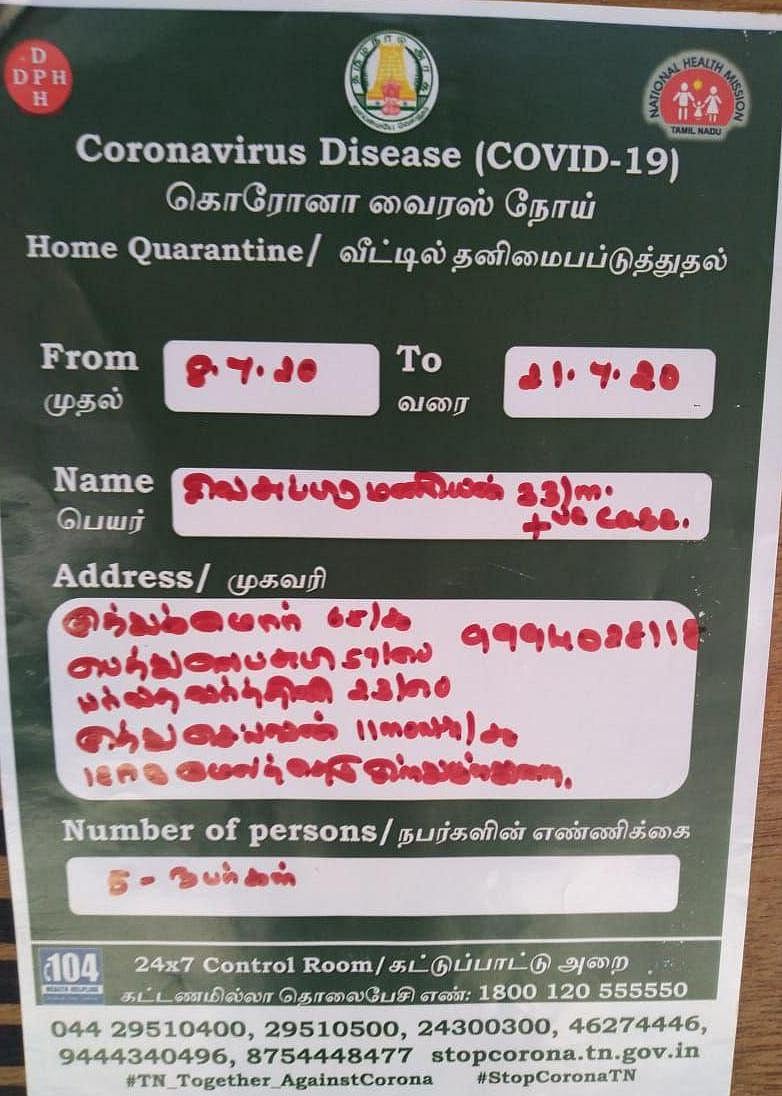 D
DPH
H
தமிழ்நாடு அரசு
வாய்மையே வெல்லும்
NATIONAL HEALTH MISSION
TAMIL NADU
Coronavirus Disease (COVID-19)
கொரோனா வைரஸ் நோய்
Home Quarantine/ வீட்டில் தனிமைபப்டுத்துதல்
From
முதல்
8.7.20
To
வரை
21.7.20
Name
பெயர்
33/m.
+ve case.
Address/ முகவரி
65/
9994028118
59/
22/
11month/
Number of persons/நபர்களின் எண்ணிக்கை
5 - நபர்கள்
104
HEALTH HELPLINE
24x7 Control Room/கட்டுப்பாட்டு அறை
கட்டணமில்லா தொலைபேசி எண்: 1800 120 555550
044 29510400, 29510500, 24300300, 46274446,
9444340496, 8754448477 stopcorona.tn.gov.in
#TN_Together_AgainstCorona #StopCoronaTN